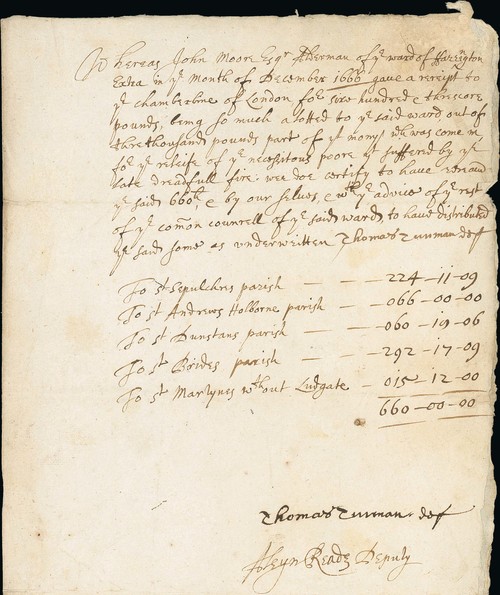 Whereas John Moore Esqr Alderman of ye ward of Farington
Extra in ye Month of December 1666 gave a receipt to
ye chamberline of London for six hundred & threscore
pounds, being so much alotted to ye said ward out of
three thousands pounds part of ye monys wch was come in
for ye releife of ye necessitous poore yt suffered by ye
late dreadfull fire: wee doe certify to have receaud
ye said 660lb & by our selves, & wth ye advice of ye rest
of ye comon councell of ye said ward to have distributed
ye said some as underwritten Thomas Turman
To St Sepulchres parish — — — 224-11-09
To St Andrews Holborne parish — — 066-00-00
To St Dunstans parish — — — 060-19-06
To St Brides parish — — — 292-17-09
To St Martynes wthout Ludgate — 015-12-00
660-00-00
Thomas Turman
Aleyn Reade Deputy